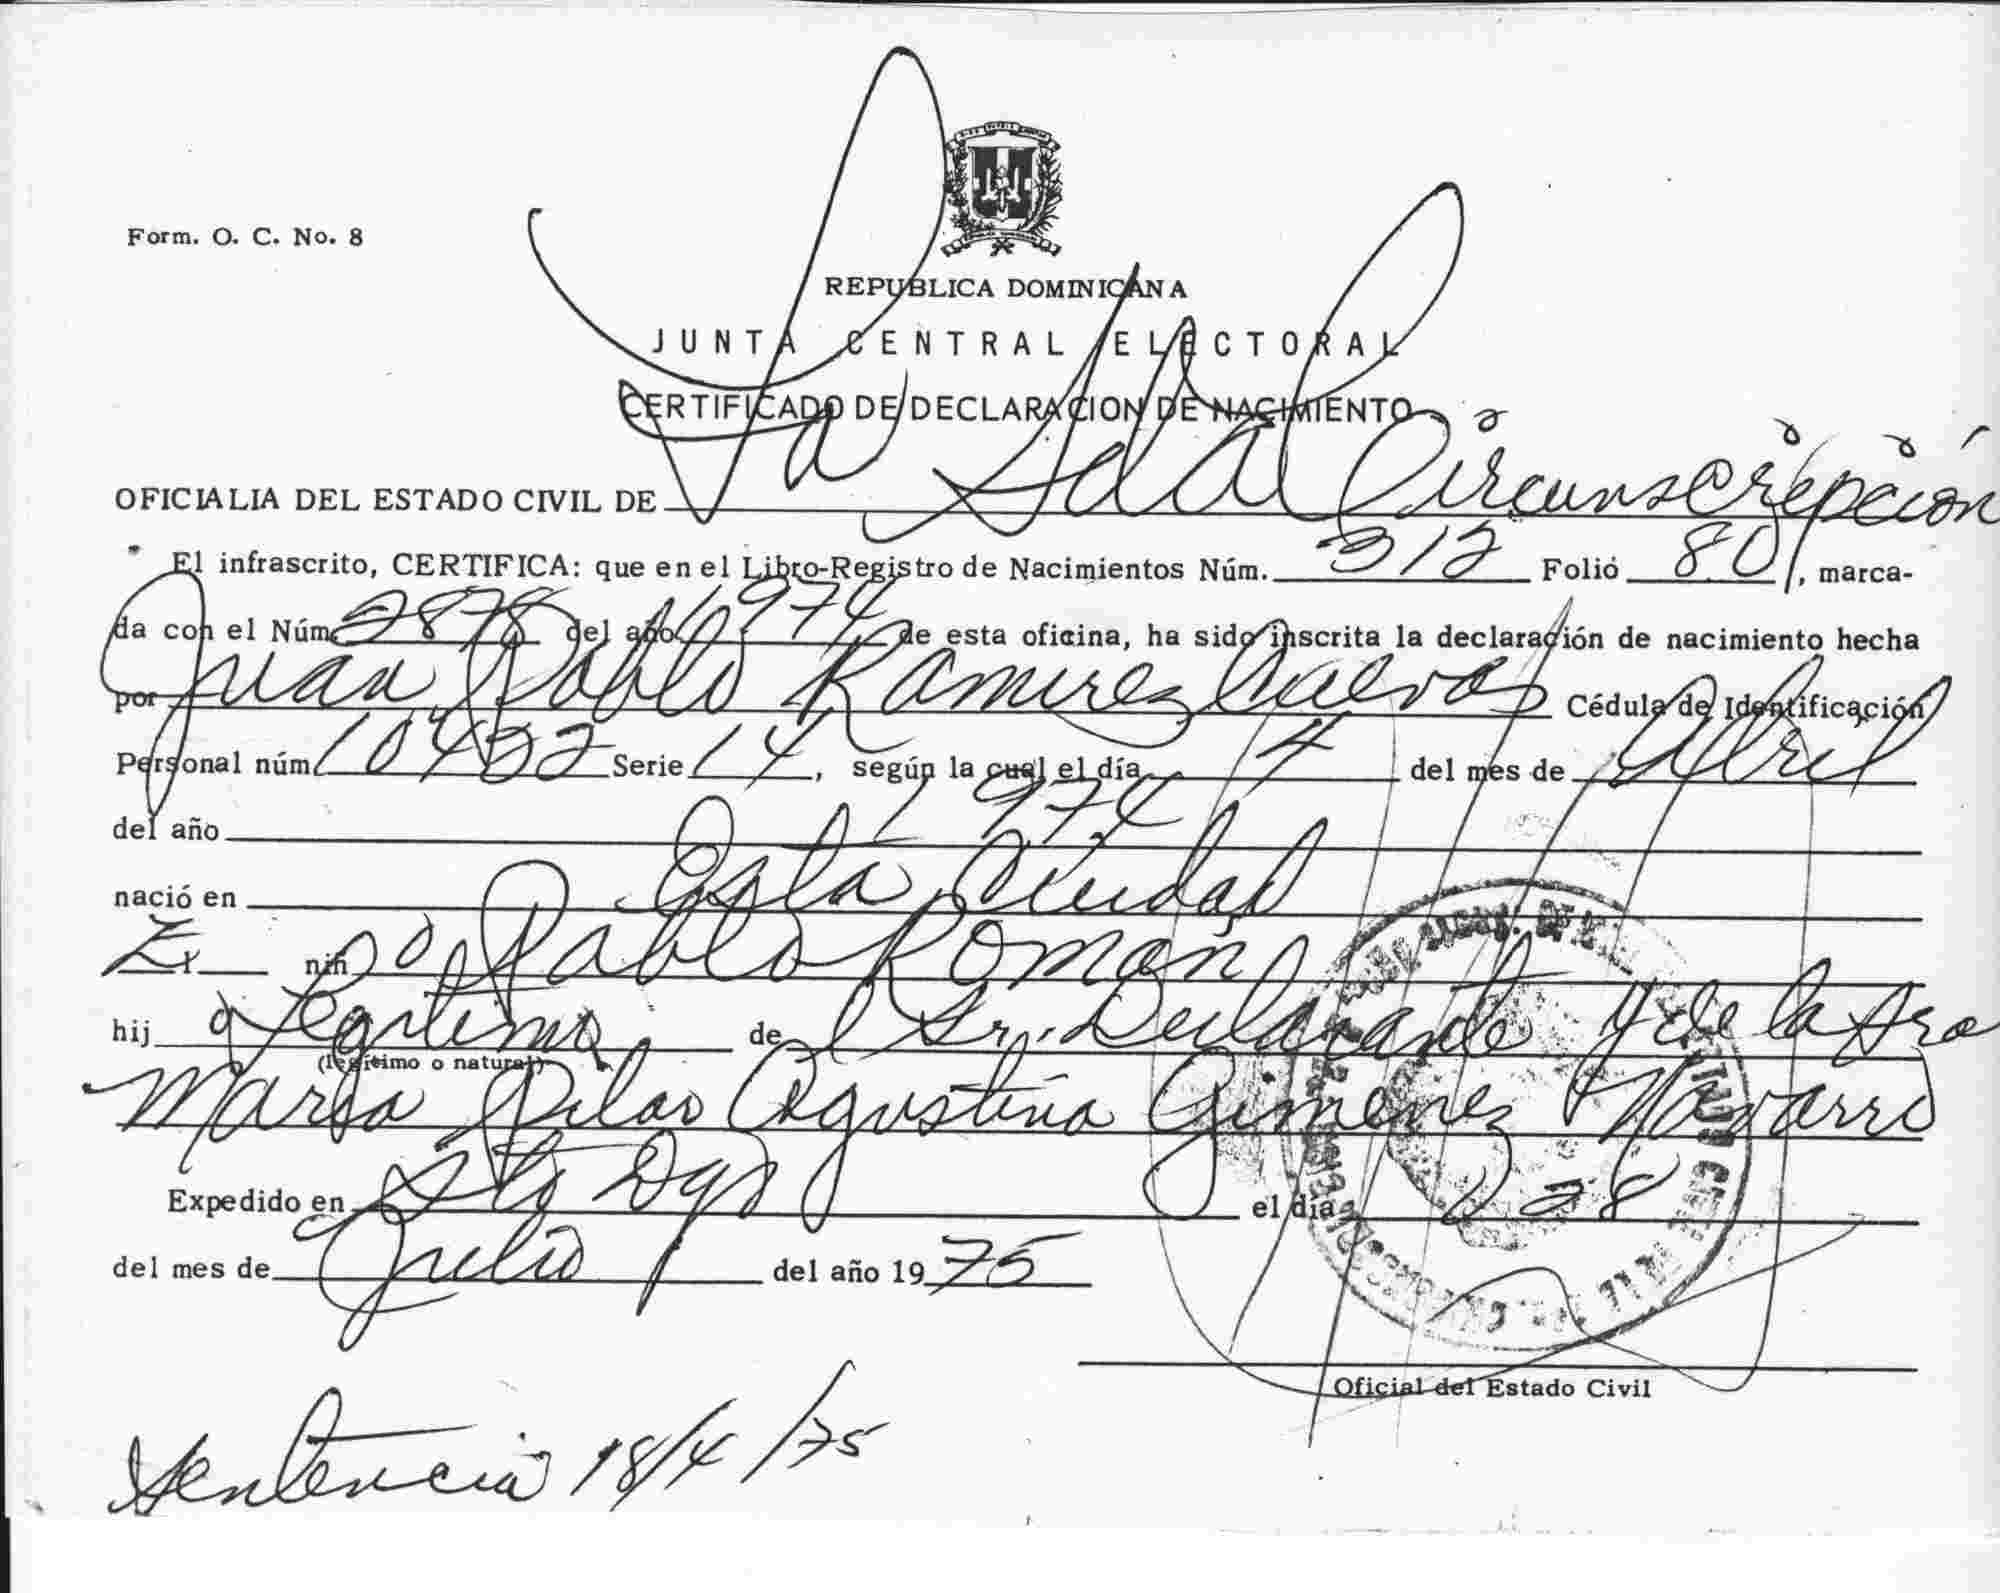 Form. O. C. No. 8
REPUBLICA DOMINICANA
JUNTA CENTRAL ELECTORAL
CERTIFICADO DE DECLARACION DE NACIMIENTO
OFICIALIA DEL ESTADO CIVIL DE La 2da Circunscrepción
El infrascrito, CERTIFICA: que en el Libro-Registro de Nacimientos Núm. 312 Folió 80, marca-
da con el Núm. 2878 del año 1974 de esta oficina, ha sido inscrita la declaración de nacimiento hecha
por Juan Pablo Ramirez Cuevas Cédula de Identificación
Personal núm. 10432 Serie 14, según la cual el día 4 del mes de Abril
del año 1974
nació en Esta Ciudad
El niño Pablo Roman
hijo Legitimo de l Sr. Declarante y de la Sra
(legítimo o natural)
Maria Pilar Agustina Gimenez Navarro
Expedido en Sto Dgo el día 28
del mes de Julio del año 1975
Oficial del Estado Civil
Sentencia 18/4/75